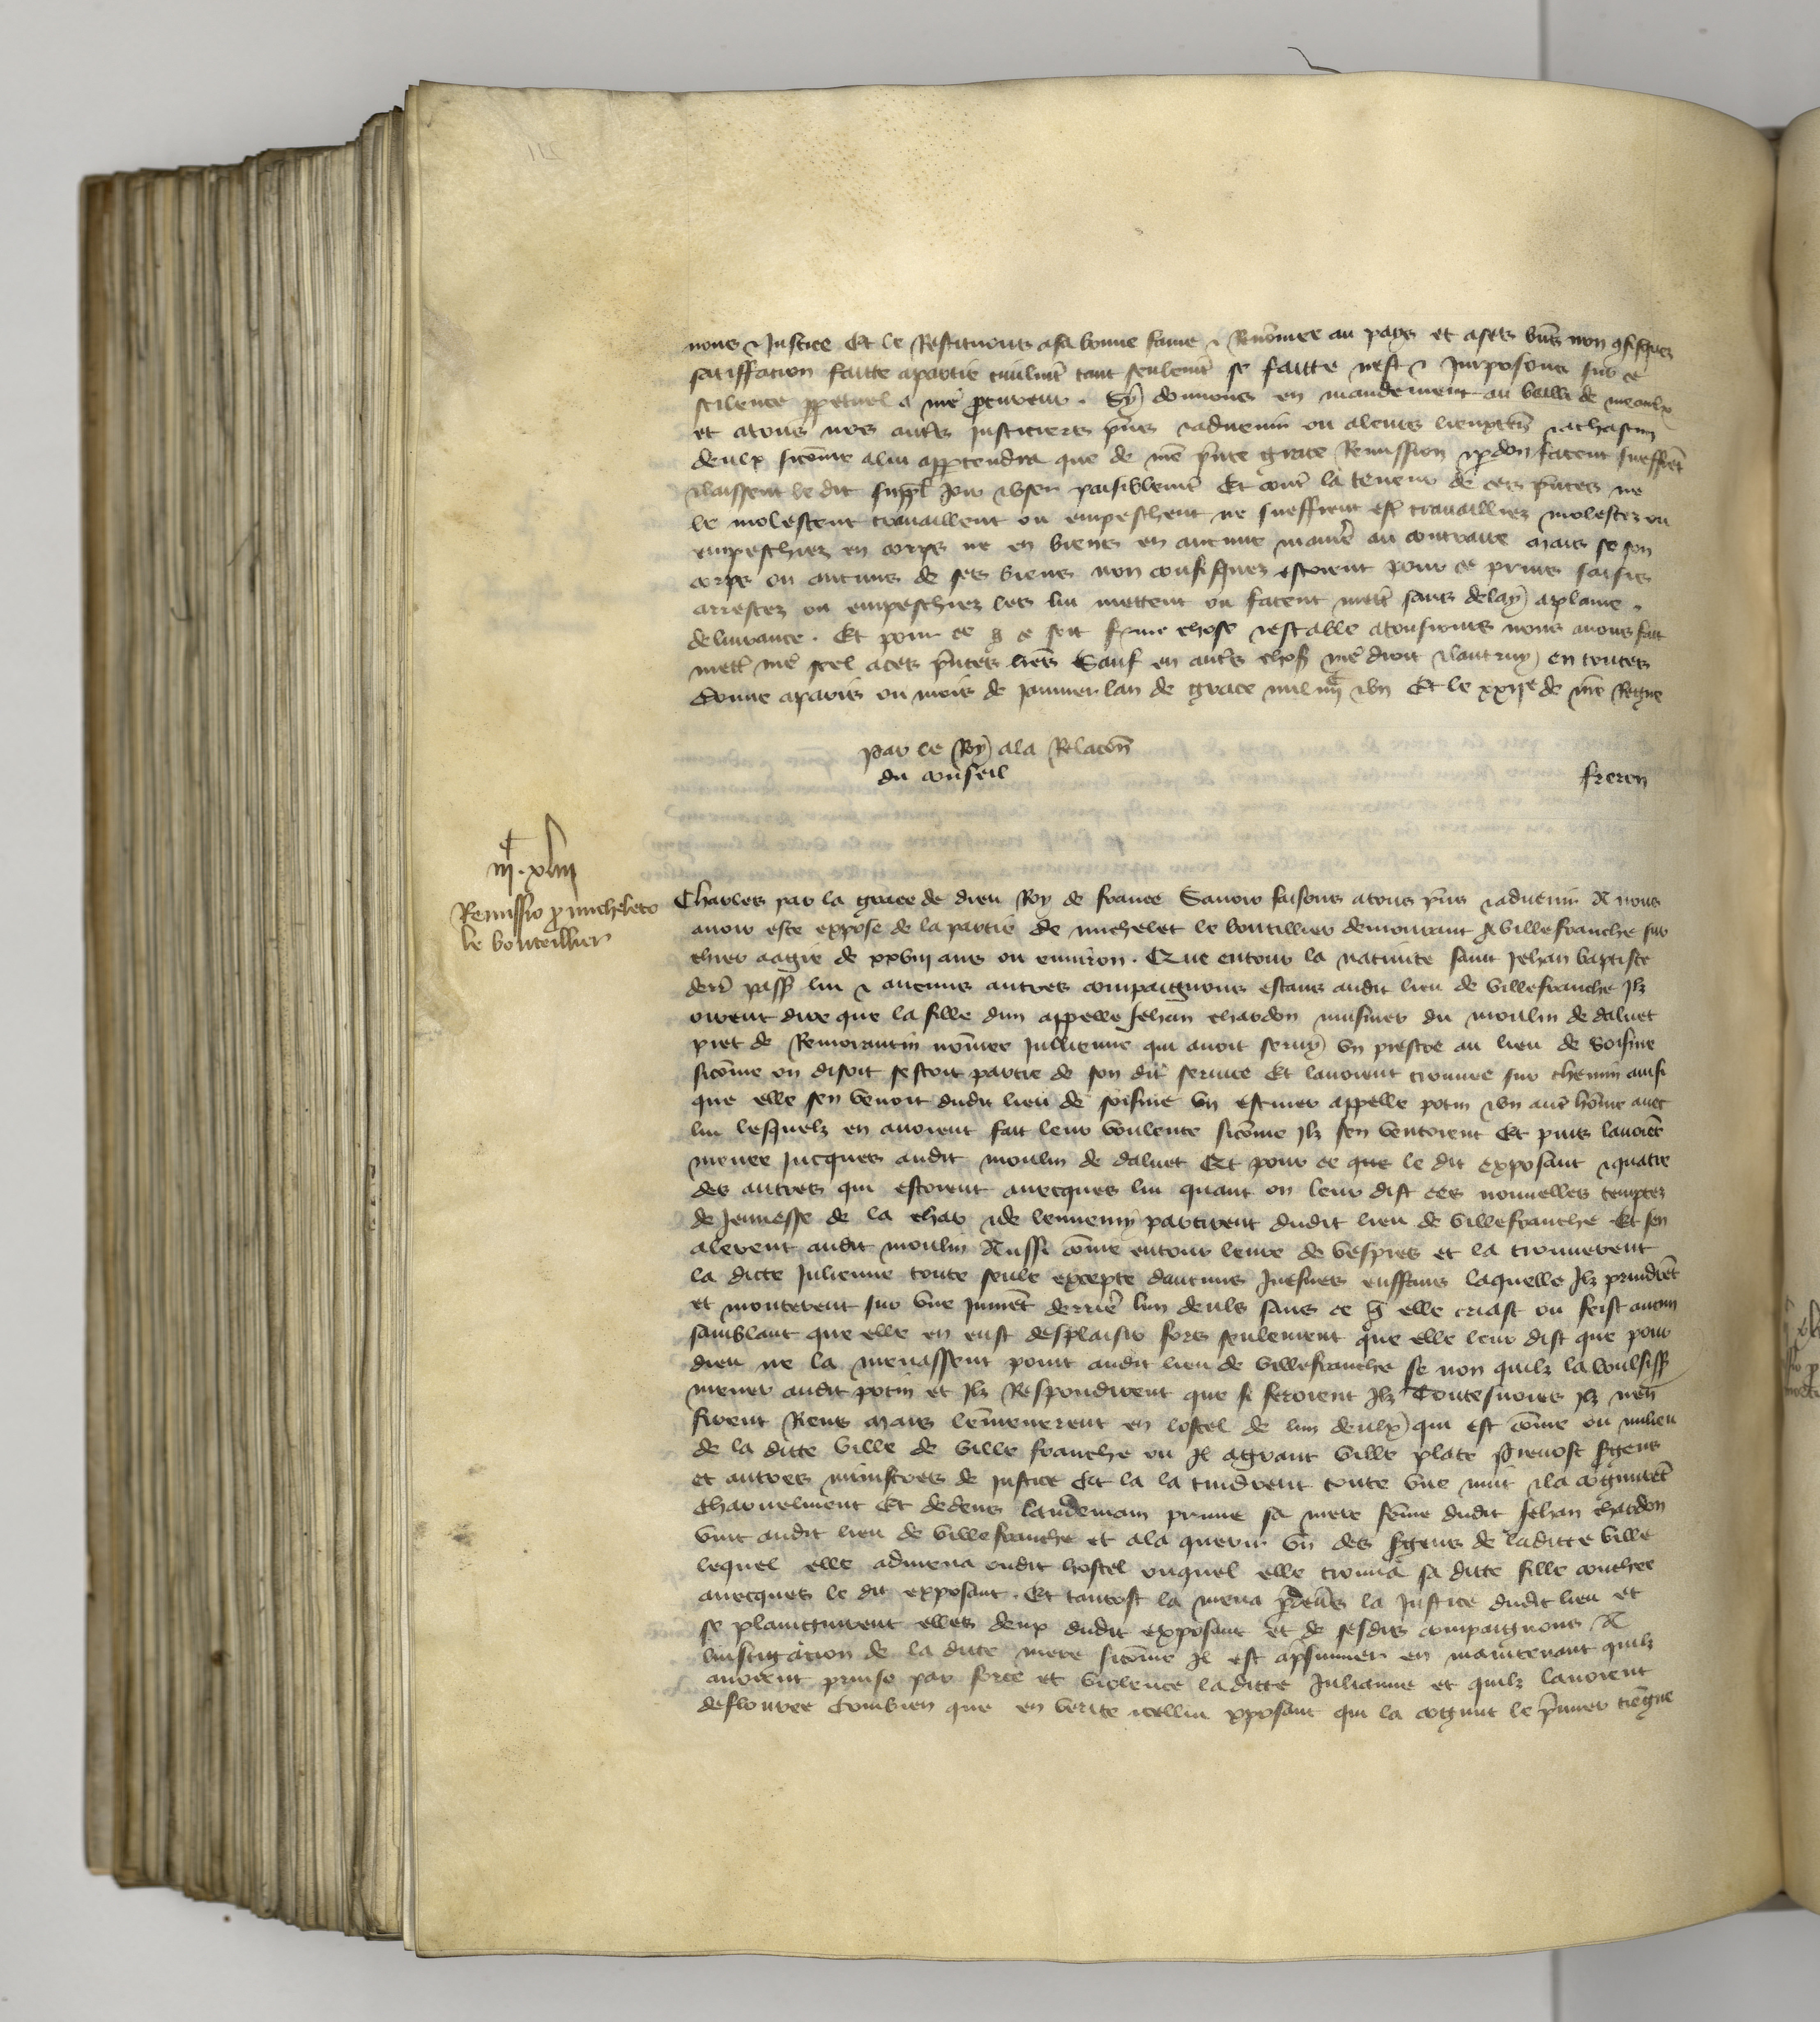 nous & Justice Et le Restituons a sa bonne fame & Renõmee au pays et a ses bñs non gfisquez
satiffacion faitte a partie ciuilmẽt tant seulemẽt se faitte nest & Imposons sur ce
scilence ppetuel a nrẽ procureur . Sy donnons en mandement au bailli de meaulx
et a tous nos autrẽs justiciers pñs & aduenir ou a leurs lieuxteñ & a chascun
deulx sicõme a lui appartendra que de nrẽ pñte grace Remission & pdon facent sueffrẽt
& laissent le dit suppl̃ joir & vser paisiblemẽt Et contrẽ la teneur de ces pñtes ne
le molestent trauaillent ou empeschent ne sueffrent estrẽ trauailliez molestez ou
empeschiez en corps ne en biens en aucune manierẽ au contraire mais se son
corps ou aucuns de ses biens non confisquez estoient pour ce prins saisis
arrestez ou empeschiez les lui mettent ou facent mettrẽ sans delay a plaine
deliurance . Et pour ce q̃ ce soit ferme chose & estable a tousiours nous auons fait
mettrẽ nrẽ seel a ces pñtes lrẽs Sauf en autrẽs choses nrẽ droit & lautruy en toutes
donne a paris ou mois de januier lan de grace mil iiijc & vn Et le xxije de nrẽ Regne
par le Roy a la Relacõn
du conseil
freron
iijc. xliij
Remissio pro micheleto
le bouteillier
Charles par la grace de dieu Roy de france Sauoir faisons a tous pñs & aduenir A nous
auoir este expose de la partie de michelet le boutillier demourant a villefranche sur
chier aagie de xxviij ans ou enuiron . Que entour la natiuite saint jehan baptiste
derrẽ passẽ lui & aucuns autres compaignons estans audit lieu de villefranche Ilz
oirent dire que la fille dun appelle Jehan chardon musnier du moulin de daluet
pret de Remorantin nõmee jullienne qui auoit seruy vn prestre au lieu de Soisme
sicõme on disoit sestoit partie de son dit seruice Et lauoient trouuee sur chemin ainsi
que elle sen venoit dudit lieu de soisme vn escuier appelle potin & vn autrẽ hõme auec
lui lesquelz en auoient fait leur voulente sicõme Ilz sen ventoient Et puis lauoiẽt
menee Jucques audit moulin de daluet Et pour ce que le dit exposant & quatre
des autres qui estoient auecques lui quant on leur dist ces nouuelles temptez
de Jeunesse de la char & de lennemy partirent dudit lieu de villefranche Et sen
alerent audit moulin Aussi cõme entour leure de vespres et la trouuerent
la dicte Julienne toute seule excepte daucuns Juesnes enffans laquelle Ilz prindrẽt
et monterent sur vne jumẽt derrierẽ lun deuls sans ce q̃ elle criast ou feist aucun
samblant que elle en eust desplaisir fors seulement que elle leur dist que pour
dieu ne la menassent point audit lieu de villefranche se non quilz la voulsissẽ
mener audit potin et Ilz Respondirent que si feroient Ilz Toutesuoies Ilz nen
firent Riens mais lemmenerent en lostel de lun deulx qui est cõme ou milieu
de la ditte ville de ville franche ou Il a grant ville plate preuost sergens
et autres ministres de justice Et la la tindrent toute vne nuit & la cognurẽt
charnelment Et dedens landemain prime sa mere fẽme dudit Jehan chardon
vint audit lieu de villefranche et ala querir vn des sergens de laditte ville
lequel elle admena oudit hostel ouquel elle trouua sa ditte fille couchee
auecques le dit exposant . Et tantost la mena pdeuers la Justice dudit lieu et
se plaingnirent elles deux dudit exposant et de sesdis compaignons A
linstigacion de la ditte mere sicõme Il est apsumer en maintenant quilz
auoient prinse par force et violence laditte Julianne et quilz lauoient
deflouree Combien que en verite icellui exposant qui la cognut le pmier tiengne